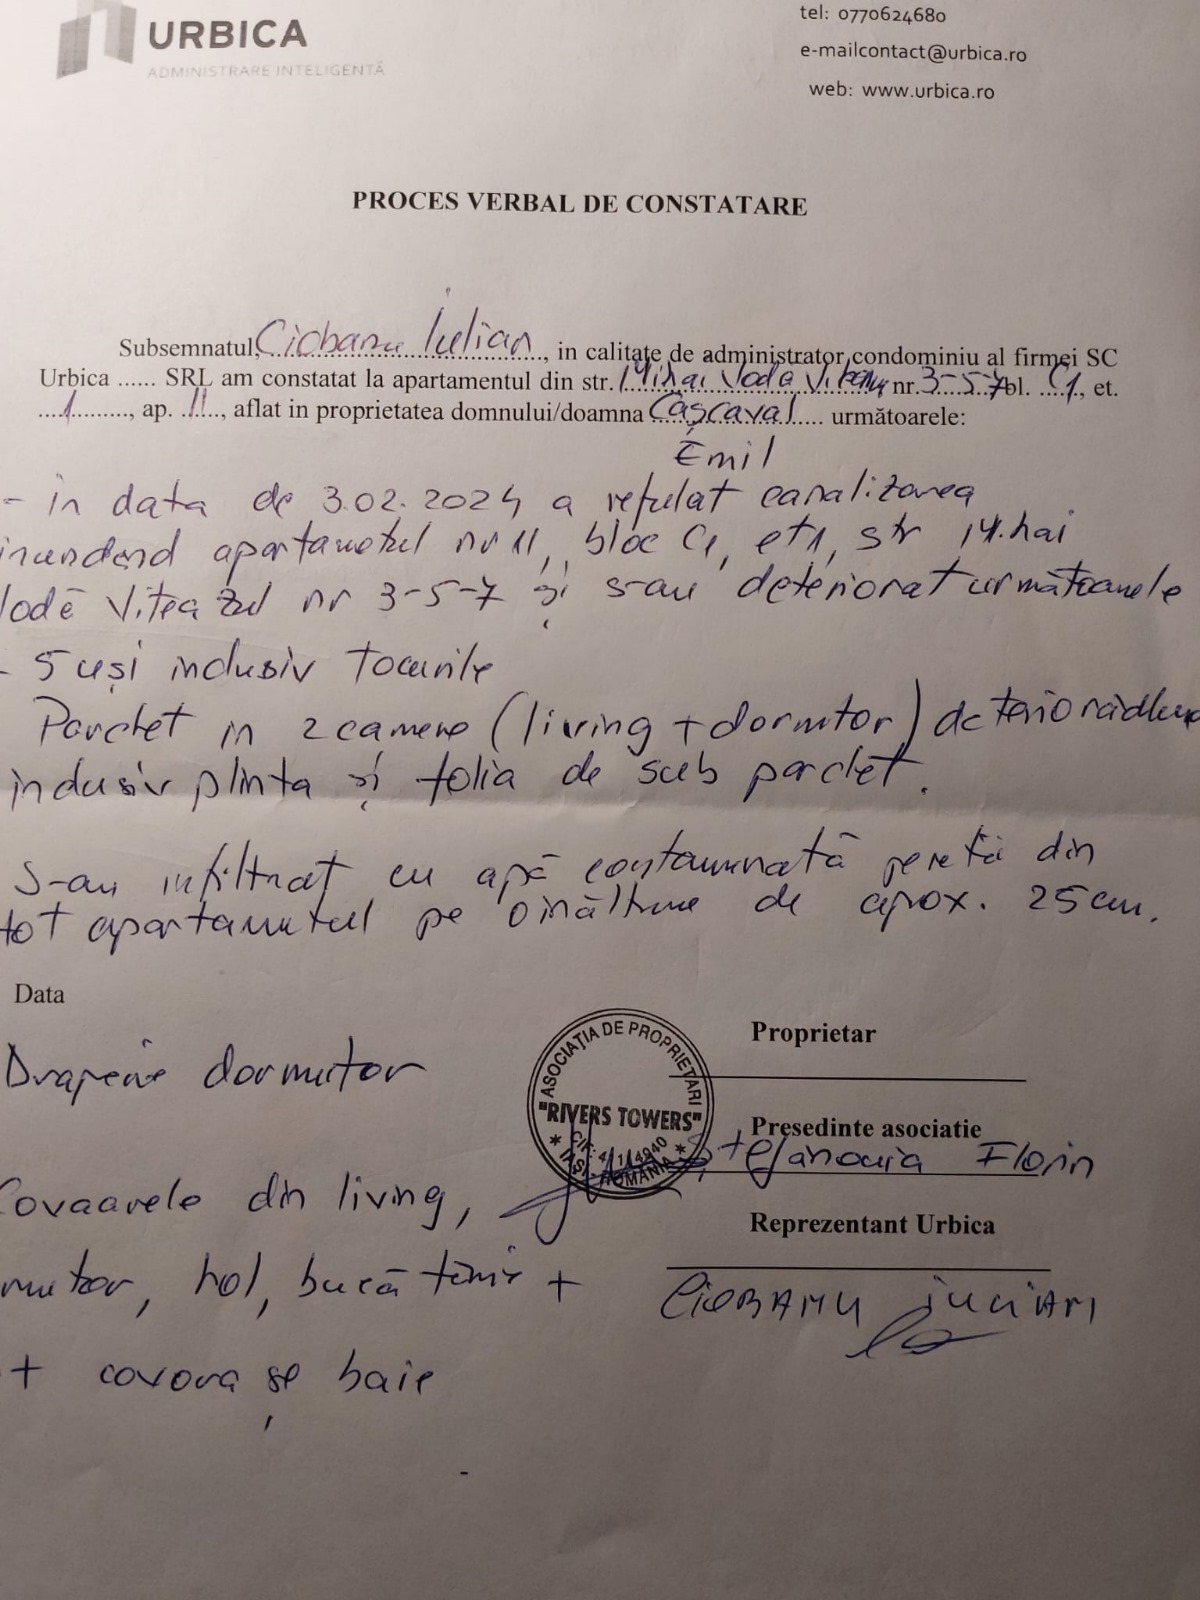 URBICA
ADMINISTRARE INTELIGENTĂ
tel: 0770624680
e-mailcontact@urbica.ro
web: www.urbica.ro
PROCES VERBAL DE CONSTATARE
Subsemnatul, Ciobanu Iulian, in calitate de administrator condominiu al firmei SC
Urbica ...... SRL am constatat la apartamentul din str. Mihai Voda Viteazu nr. 3-5-7 bl. C1, et.
1, ap. 11, aflat in proprietatea domnului/doamna Cașcaval următoarele:
Emil
- in data de 3.02.2024 a refulat canalizarea
inundând apartametul nr 11, bloc C1, et1, str Mihai
Vodă Viteazul nr 3-5-7 și s-au deteriorat următoarele
- 5 uși inclusiv tocurile
Parchet in 2 camere (living + dormitor)
inclusiv plinta și folia de sub parchet.
S-au infiltrat cu apă contaminată pereții din
tot apartametul pe o inăltime de aprox. 25 cm.
Data
Draperie dormitor
Covoarele din living,
mitor, hol, bucătărie +
+ covoraș baie
Proprietar
Presedinte asociatie
Ștefanoaia Florin
Reprezentant Urbica
CIOBANU IULIAN
ASOCIAȚIA DE PROPRIETARI
"RIVERS TOWERS"
IAȘI - ROMÂNIA